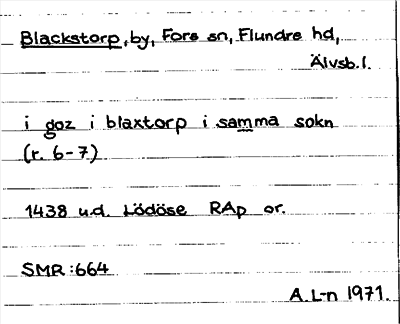 Blackstorp, by, Fors sn, Flundre hd,
Älvsb. l.
i goz i blaxtorp i samma sokn
(r. 6-7)
1438 u.d. Lödöse RAp or.
SMR:664
A. L-n 1971.